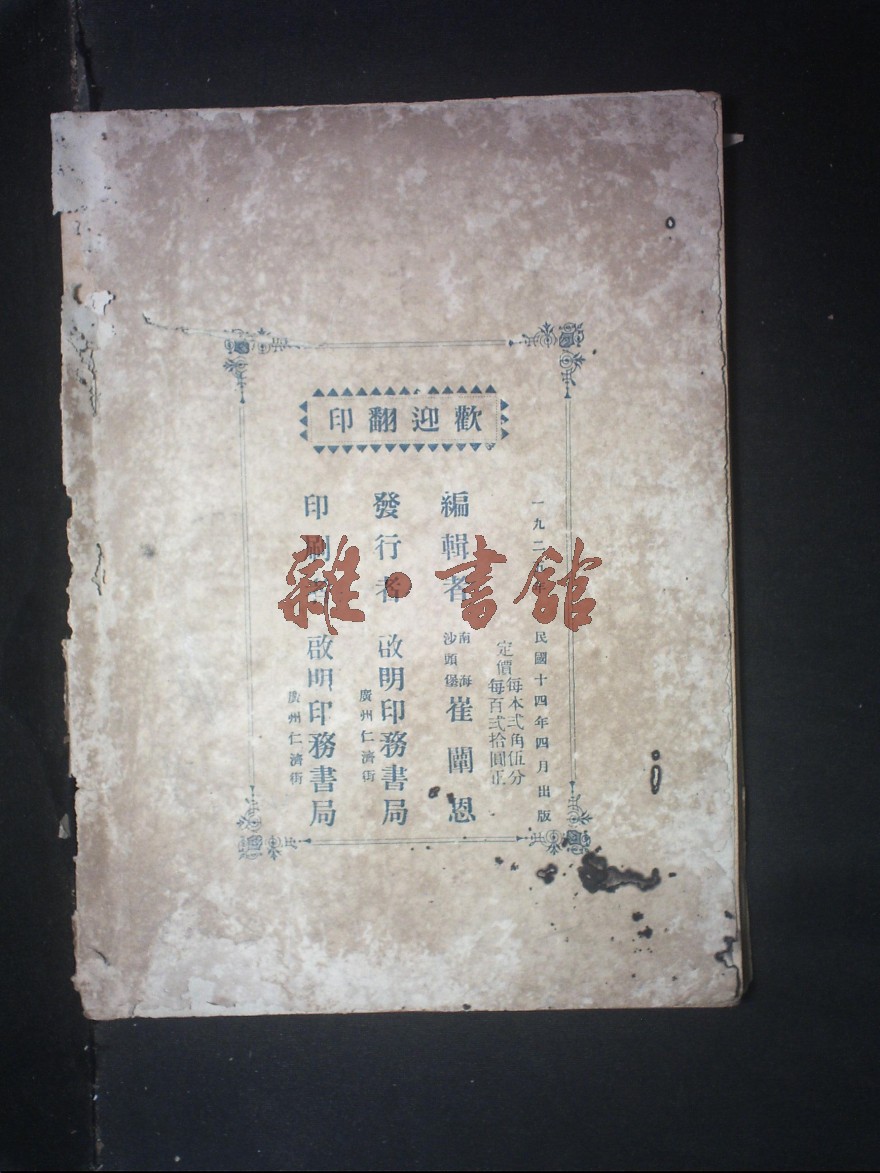 歡迎翻印
一九二五年 民國十四年四月出版
定價每本弍角伍分
每百弍拾圓正
編輯者 南海沙頭堡 崔闡恩
發行者 啟明印務書局
廣州仁濟街
印刷者 啟明印務書局
廣州仁濟街
雜·書館